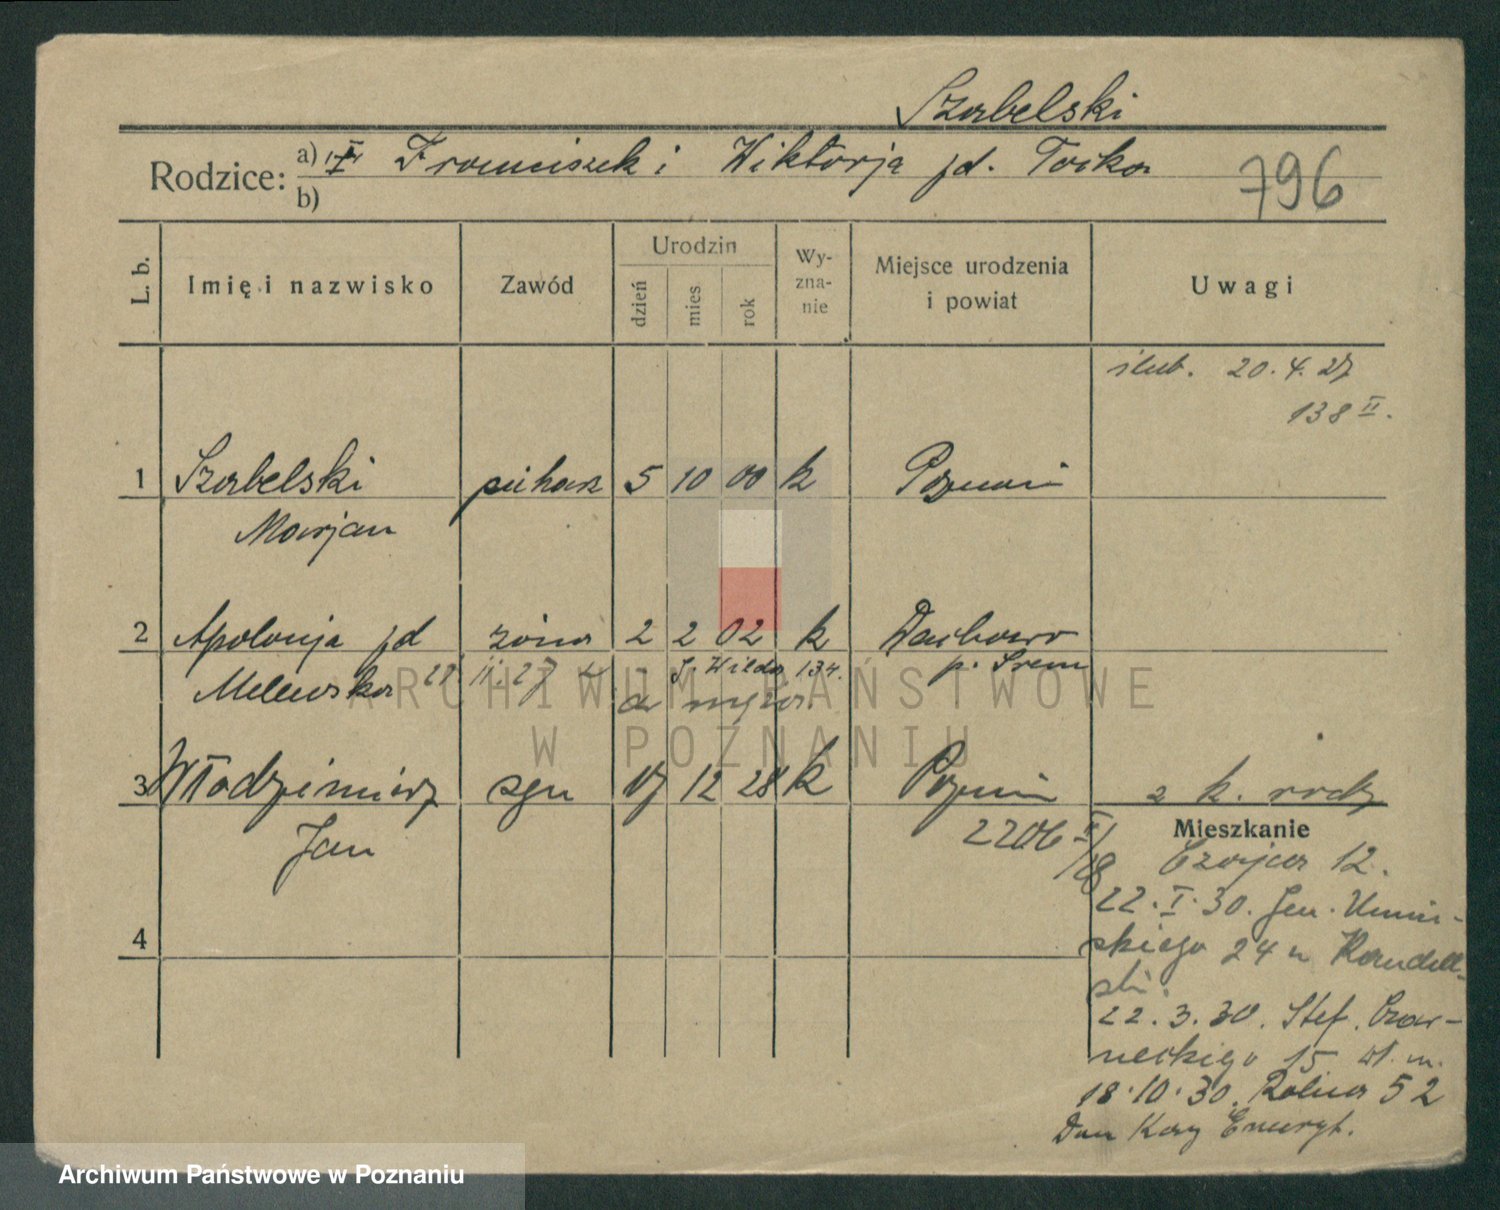 Szabelski
Rodzice: a) Franciszek i Wiktorja zd. Tocka
b)
796
L. b. Imię i nazwisko Zawód Urodzin dzień mies rok Wyznanie Miejsce urodzenia i powiat Uwagi
ślub. 20.4.27
138 II.
1 Szabelski piekarz 5 10 00 k Poznań
Marjan
2 Apolonja zd żona 2 2 02 k Dachowo
Melewska 27 II.27 z J. Wilda 134. p. Śrem
do męża.
3 Włodzimierz syn 17 12 28 k Poznań z k. rodz
Jan 2206 II/18
Mieszkanie
Czajcza 12.
22.I.30. Gen. Umiń-
skiego 24 u Kandul-
ski.
22.3.30. Stef. Czar-
neckiego 15 wł. m.
18.10.30. Rolna 52
Dom Kasy Emeryt.
4
ARCHIWUM PAŃSTWOWE
W POZNANIU
Archiwum Państwowe w Poznaniu